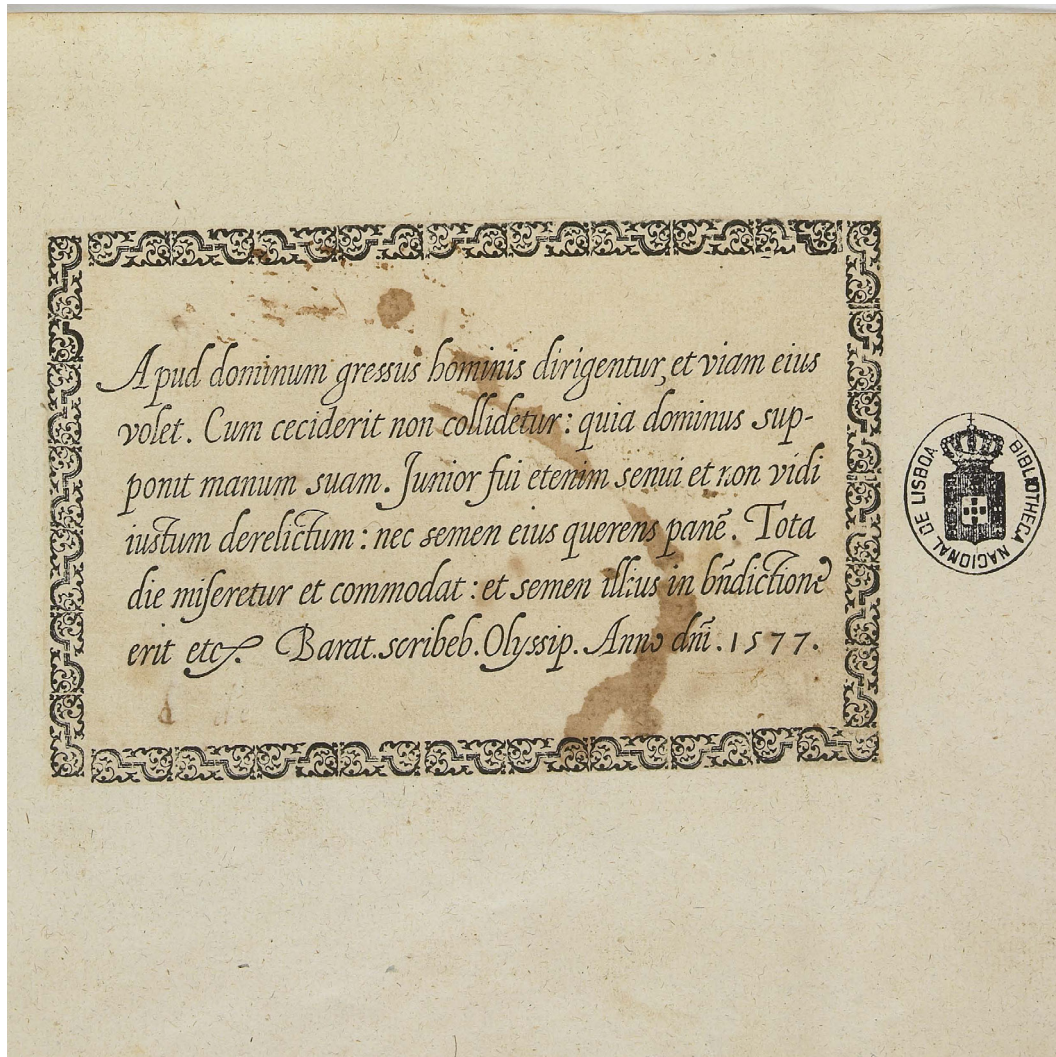 Apud dominum gressus hominis dirigentur, et viam eius
volet. Cum ceciderit non collidetur: quia dominus sup-
ponit manum suam. Junior fui etenim senui et non vidi
iustum derelictum: nec semen eius querens panē. Tota
die miseretur et commodat: et semen illius in bn̄dictione
erit etc. Barat. scribeb. Olyssip. Anno dn̄i. 1577.
BIBLIOTHECA NACIONAL DE LISBOA